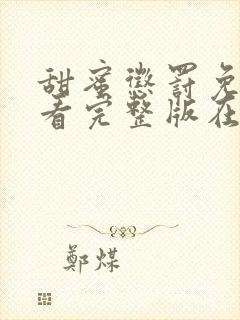 甜蜜懲罰免
看完整版在
鄭煤